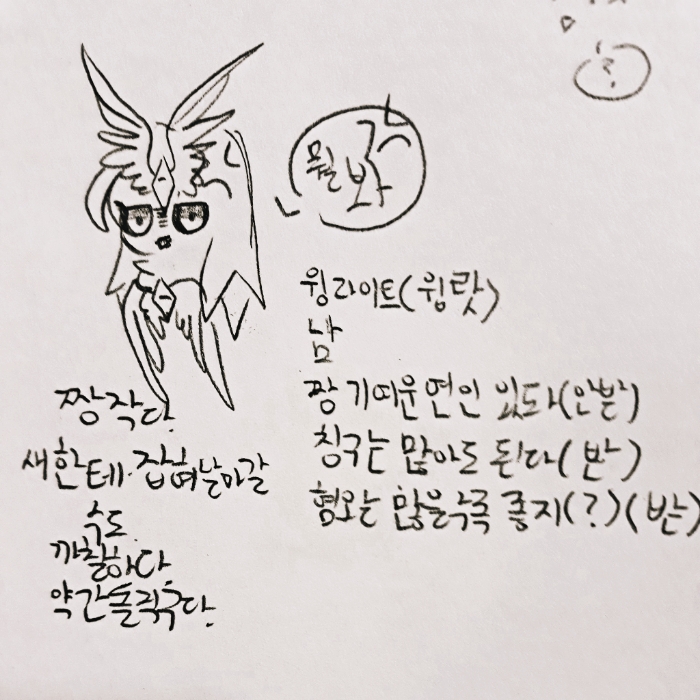 뭘 봐
윙라이트(윙랏)
남
짱 기여운 연인 있다(안받)
칭구는 많아도 된다(받)
혐오는 많을수록 좋지(?)(받)
짱작다.
새한테. 잡혀날아갈
수도.
까칠하다
약간돌직구다.
?